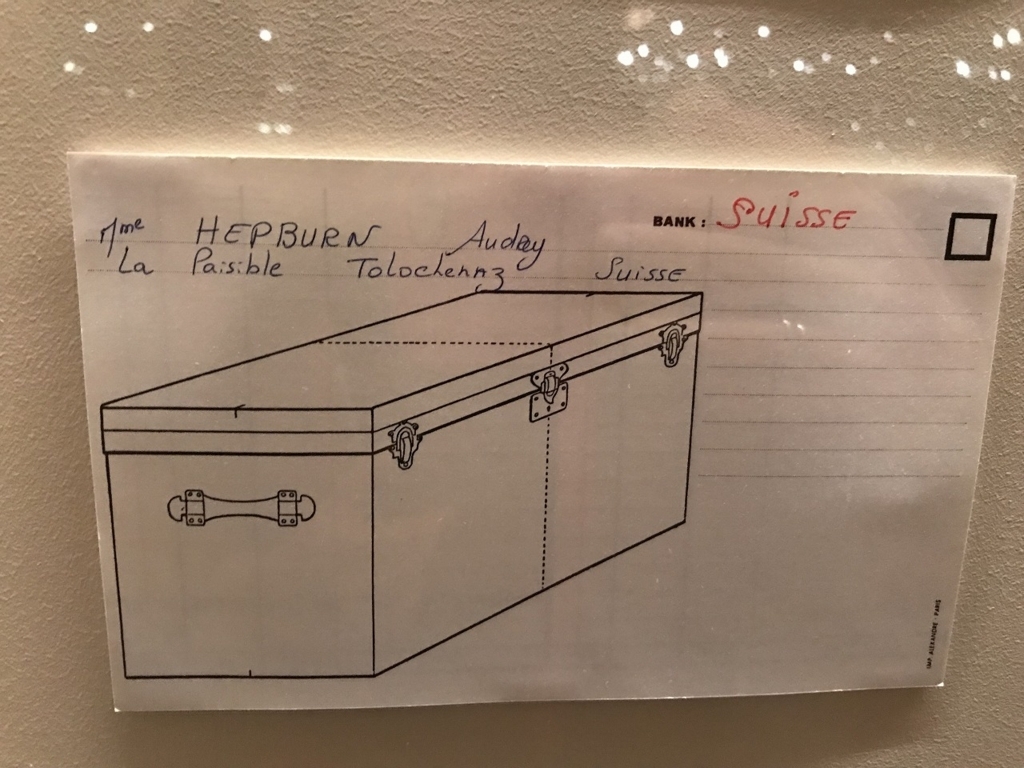 Mme HEPBURN Audrey BANK: SUISSE
La Paisible Tolochenaz Suisse
IMP. ALEXANDRE PARIS